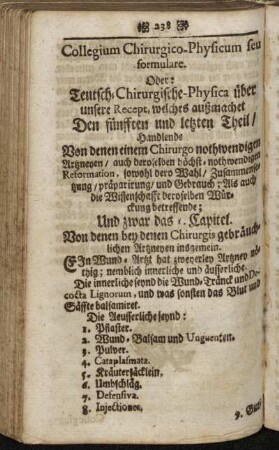 238
Collegium Chirurgico-Physicum seu
formulare.
Oder:
Teutsch-Chirurgische-Physica über
unsere Recept, welches außmachet
Den fünfften und letzten Theil/
Handlende
Von denen einem Chirurgo nothwendigen
Artzneyen/ auch deroselben höchst-nothwendigen
Reformation, sowohl dero Wahl/ Zusammense-
tzung/ präparirung/ und Gebrauch; Als auch
die Wissenschafft deroselben Wür-
ckung betreffende;
Und zwar das 1. Capitel.
Von denen bey denen Chirurgis gebräuch-
lichen Artzneyen insgemein.
EIn Wund-Artzt hat zweyerley Artzney nö-
thig; nemblich innerliche und äusserliche.
Die innerliche seynd die Wund-Tränck und De-
cocta Lignorum, und was sonsten das Blut und
Säffte balsamiret.
Die Aeusserliche seynd:
1. Pflaster.
2. Wund-Balsam und Unguenten.
3. Pulver.
4. Cataplasmata.
5. Kräutersäcklein.
6. Umbschläg.
7. Defensiva.
8. Injectiones.
9.